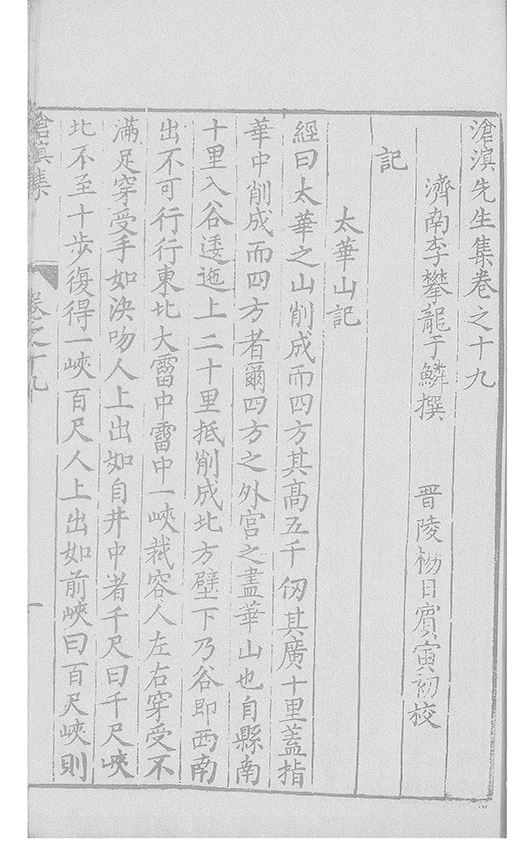 滄溟先生集卷之十九
濟南李攀龍于鱗撰　晋陵楊日賓寅初校
記
太華山記
經曰太華之山削成而四方其髙五千仞其廣十里蓋指
華中削成而四方者爾四方之外宫之盡華山也自縣南
十里入谷逶迤上二十里抵削成北方壁下乃谷即西南
出不可行行東北大霤中霤中一峽裁容人左右穿受不
滿足穿受手如決吻人上出如自井中者千尺曰千尺峽
北不至十步復得一峽百尺人上出如前峽曰百尺峽則
滄溟集　卷之十九　一